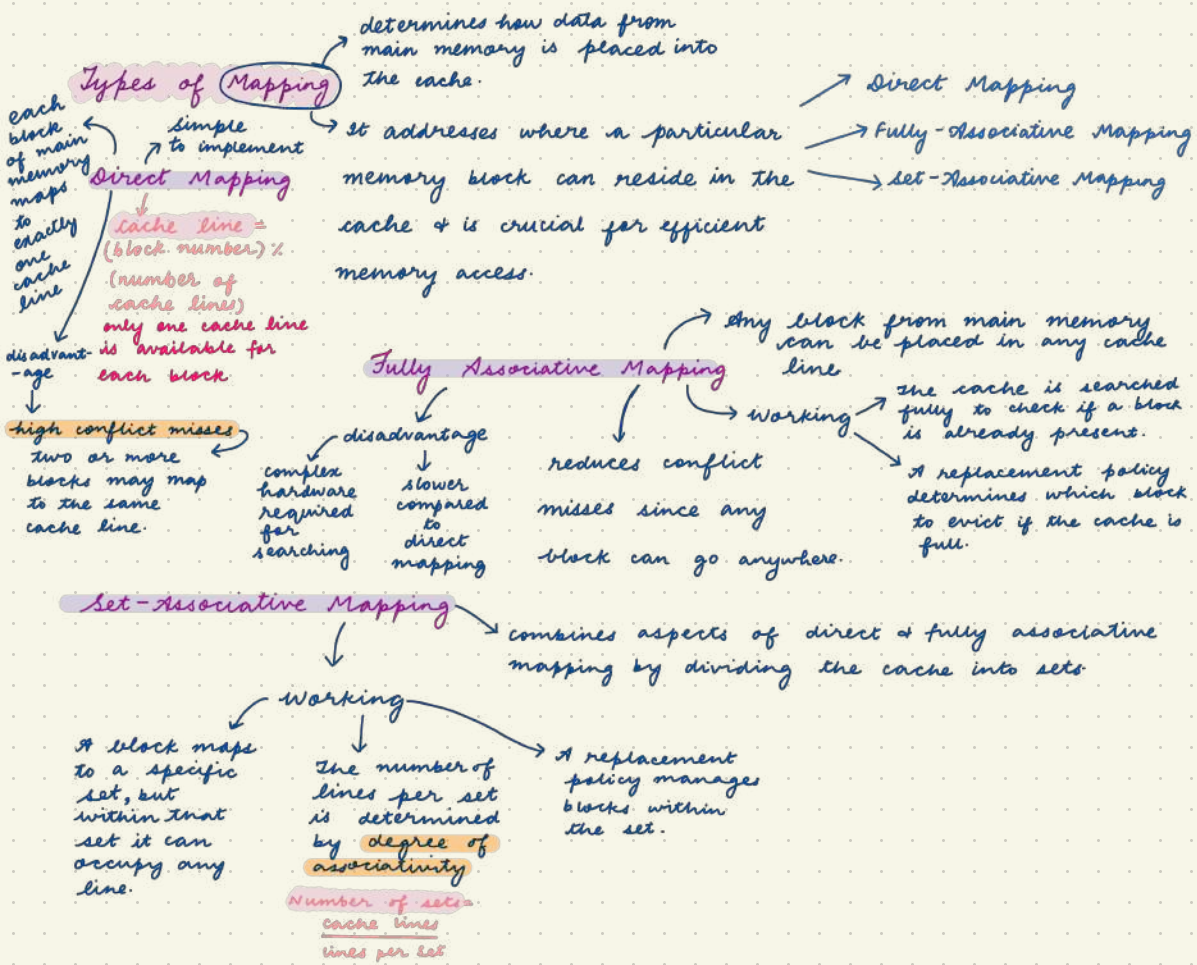 Types of Mapping
determines how data from
main memory is placed into
the cache.
It addresses where a particular
memory block can reside in the
cache & is crucial for efficient
memory access.
Direct Mapping
Fully-Associative Mapping
Set-Associative Mapping
Direct Mapping
each
block
of main
memory
maps
to
exactly
one
cache
line
simple
to implement
cache line =
(block number) %
(number of
cache lines)
only one cache line
is available for
each block
disadvant-
-age
high conflict misses
two or more
blocks may map
to the same
cache line.
Fully Associative Mapping
Any block from main memory
can be placed in any cache
line
working
The cache is searched
fully to check if a block
is already present.
A replacement policy
determines which block
to evict if the cache is
full.
reduces conflict
misses since any
block can go anywhere.
disadvantage
complex
hardware
required
for
searching
slower
compared
to
direct
mapping
Set-Associative Mapping
combines aspects of direct & fully associative
mapping by dividing the cache into sets.
working
A block maps
to a specific
set, but
within that
set it can
occupy any
line.
The number of
lines per set
is determined
by degree of
associativity
Number of sets=
cache lines
lines per set
A replacement
policy manages
blocks within
the set.